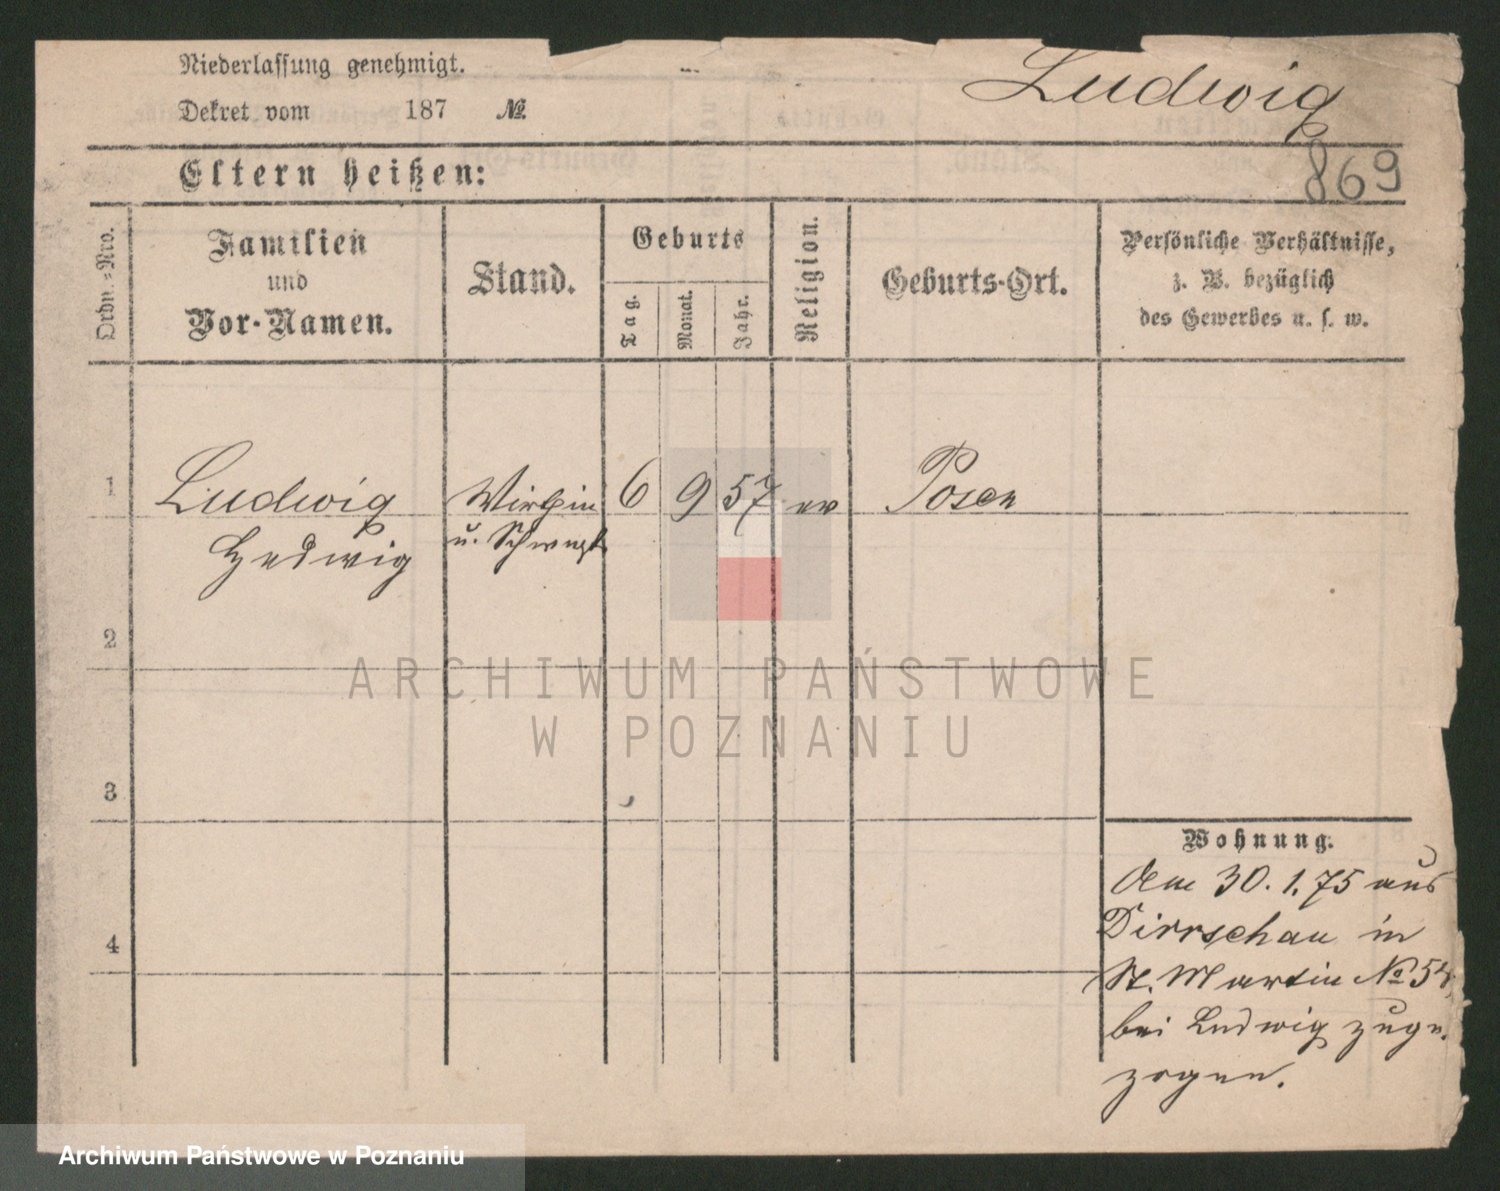 Niederlassung genehmigt.
Dekret vom 187 №
Ludwig
869
Eltern heißen:
Ordn.-Nro.
Familien
und
Vor-Namen.
Stand.
Geburts
Tag.
Monat.
Jahr.
Religion.
Geburts-Ort.
Persönliche Verhältnisse,
z. B. bezüglich
des Gewerbes u. s. w.
1 Ludwig 6 9 57 ev Posen
Hedwig u.
2
3
4
Wohnung.
Den 30. 1. 75 aus
Dirrschau in
St. Martin No 54
bei Ludwig zuge-
zogen.
ARCHIWUM PAŃSTWOWE
W POZNANIU
Archiwum Państwowe w Poznaniu